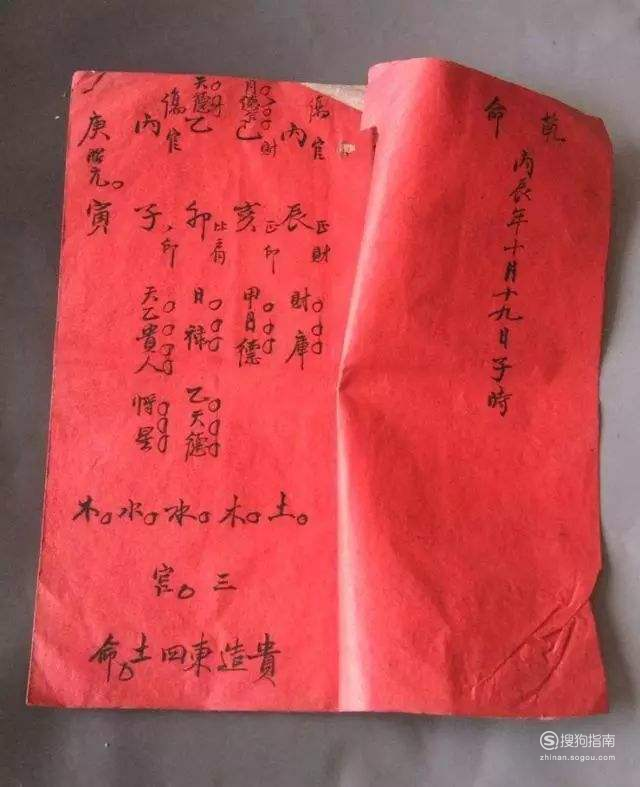 乾
命
丙辰年十月十九日子時
傷官
丙
辰
正財
財庫
月德合
己
財
亥
正印
甲月德
天德
乙
卯
比肩
日祿
乙天德
傷官
丙
子
印
天乙貴人
將星
庚
胎元
寅
土木水水木
三宮
貴造東四土命
搜狗指南
zhinan.sogou.com